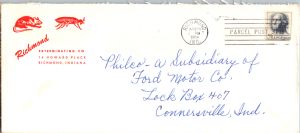 Richmond
EXTERMINATING CO.
16 HOWARD PLACE
RICHMOND, INDIANA
RICHMOND
PM
IND.
PARCEL POST
Philco - A Subsidiary of
Ford Motor Co.
Lock Box 407
Connersville, Ind.